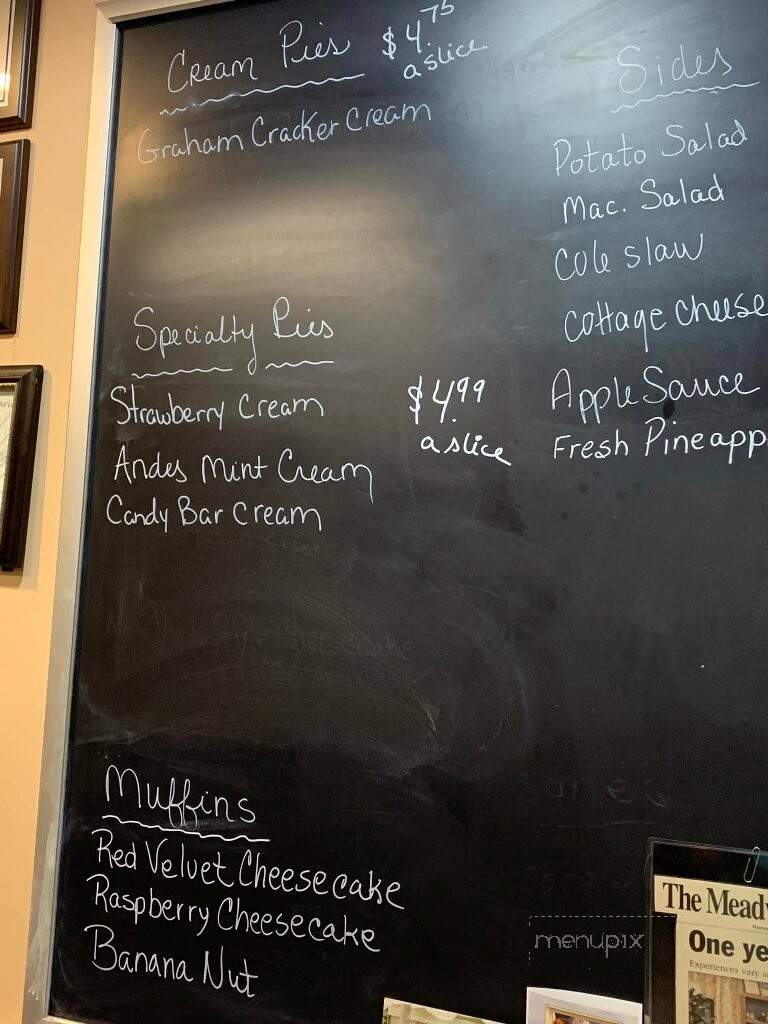 Cream Pies $4.75 a slice
Graham Cracker Cream
Specialty Pies
Strawberry Cream $4.99 a slice
Andes Mint Cream
Candy Bar Cream
Muffins
Red Velvet Cheesecake
Raspberry Cheesecake
Banana Nut
Sides
Potato Salad
Mac. Salad
Cole slaw
Cottage Cheese
Apple Sauce
Fresh Pineapp
The Mead
One ye
Experiences vary
menupix